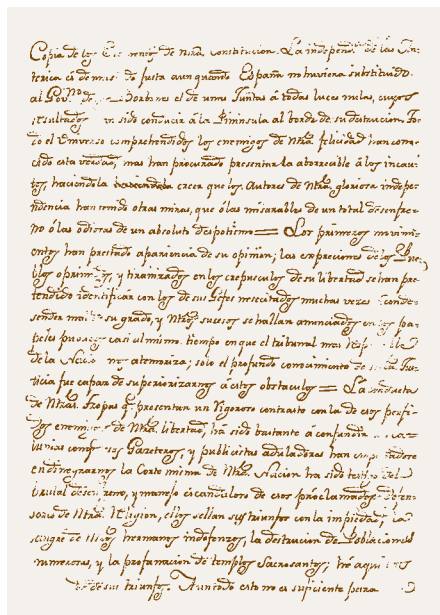 Copia de los Elementos de Ntrâ constitucion. La independª de las Am-
tericas es de mas de Justa aun quando España no huviera substituido
al Govno de Borbones el de unas Juntas â todas luces nulas, cuyos
resultados sido conducir â la Peninsula al borde de su destruccion. To-
do el Universo comprehendidos los enemigos de Ntrâ felicidad han cono-
cido esta verdad, mas han procurado presentarla aborrecible â los incau-
tos, haciendola creer que los Autores de Ntrâ gloriosa indepe-
ndencia han tenido otras miras, que ô las miserables de un total desenfre-
no ô las odiosas de un absoluto despotismo = Los primeros movimi-
entos han prestado apariencia de su opinion; las expreciones de los Pue-
blos oprimidos, y tiranizados en los crepusculos de su libertad se han pre-
tendido identificar con los de sus Gefes necesitados muchas veces conde-
sender mal su grado, y Ntrôs sucesos se hallan anunciados en los pa-
peles publicos casi al mismo tiempo en que el tribunal mas
de la Nacion nos atemoriza; solo el profundo conocimiento de Ntrâ Jus-
ticia fue capaz de superiorizarnos â estos obstaculos = La conducta
de Ntrâs Tropas qe presentan un Vigoroso contraste con la de esos perfi-
dos enemigos de Ntrâ libertad, hâ sido bastante â confundir
lumnias con Gazeteros, y publicistas aduladores han
en dinegrarnos la Corte misma de Ntrâ Nacion ha sido testigo del
brutal desenfreno, y manejo escandaloso de esos proclamados defen-
sores de Ntrâ Religion, ellos sellan sus triunfos con la impiedad, la
sangre de Ntrôs hermanos indefenzos, la destruccion de Poblaciones
numerosas, y la profanacion de templos Sacrosantos; hé aqui los
de sus triunfos. Aun todo esto no es suficiente para